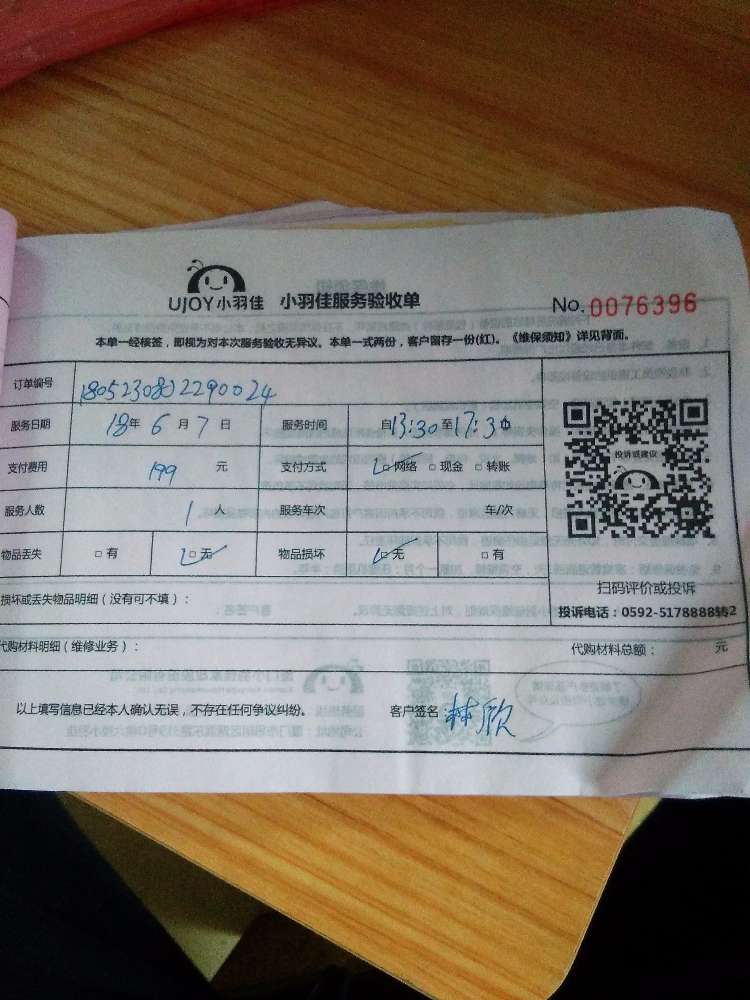 UJOY小羽佳 小羽佳服务验收单 No.0076396
本单一经核签，即视为对本次服务验收无异议。本单一式两份，客户留存一份(红)。《维保须知》详见背面。
订单编号 1805230802290024
服务日期 18年 6月 7日 服务时间 自13:30至17:30
支付费用 199 元 支付方式 □网络 □现金 □转账
服务人数 1 人 服务车次 车/次
物品丢失 □有 □无 物品损坏 □无 □有
投诉或建议
扫码评价或投诉
投诉电话：0592-5178888转2
损坏或丢失物品明细（没有可不填）：
代购材料明细（维修业务）： 代购材料总额： 元
以上填写信息已经本人确认无误，不存在任何争议纠纷。 客户签名 林欣